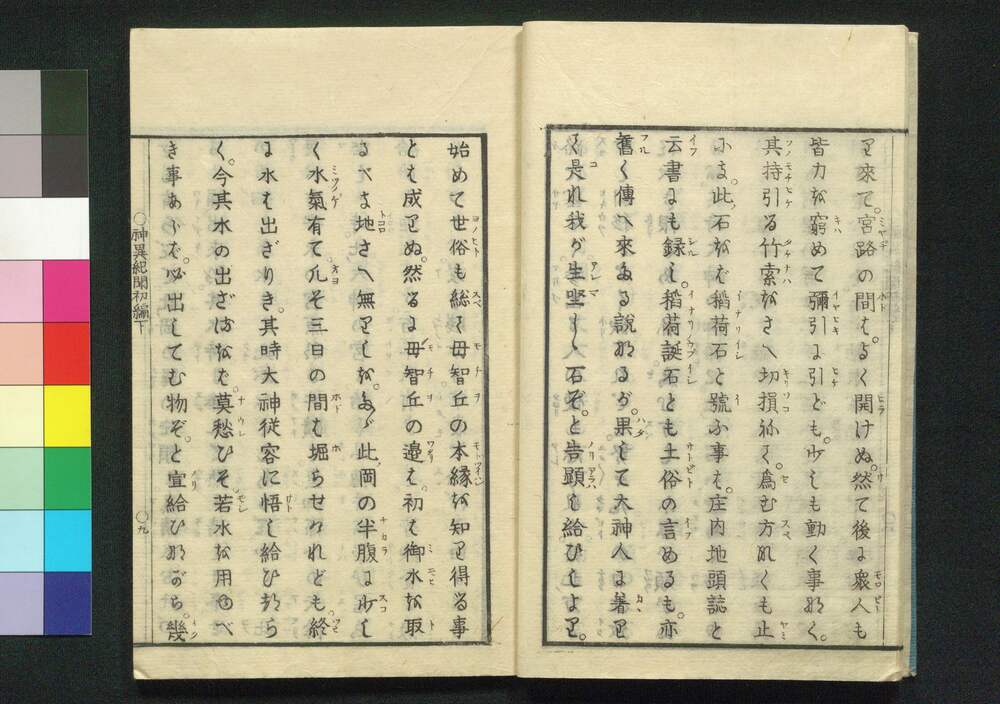 り來て。宮路の間も。よく開けぬ。然て後に衆人も
皆力を窮めて彌引に引ども。少しも動く事なく。
其持引る竹索をさへ切損ねて。爲む方なくも止
にき。此石をば稻荷石と號ふ事も。庄内地頭誌と
云書にも録し。稻荷誕石とも土俗の言めるも。亦
舊く傳へ來ある說なるが。果して大神人に著り
て是れ我が生坐しゝ石ぞ。と告顕し給ひしより。
始めて世俗も総て母智丘の本縁を知り得る事
とも成りぬ。然るに母智丘の邉は。初は御水を取
るべき地さへ無りしを。あが此岡の半腹に少し
く水氣有て。凡そ三日の間も堀らせけれども。終
に水も出ざりき。其時大神従容に悟し給ひけら
く。今其水の出ざるをば。莫愁ひそ。若水を用うべ
き事あらば。必出してむ物ぞ。と宣給ひながら。幾
○神異紀聞初編下
○九